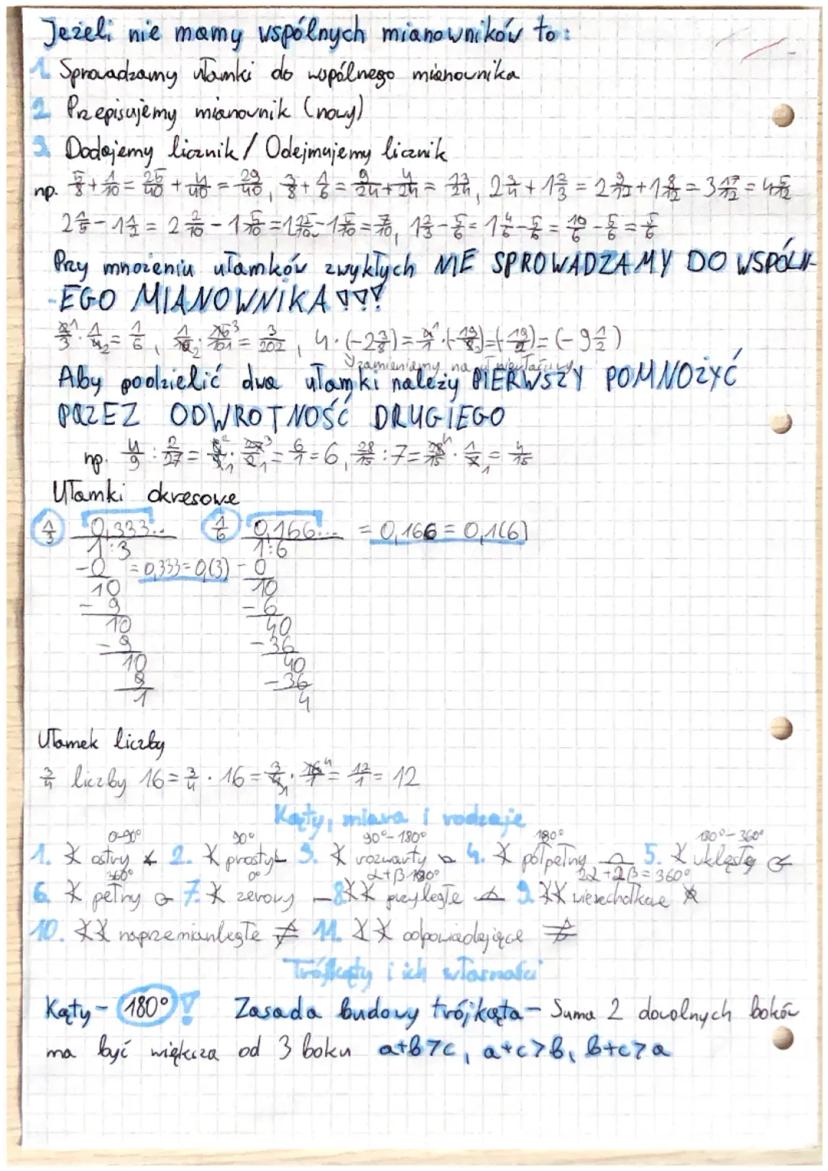 Jeżeli nie mamy wspólnych mianowników to:
1. Sprowadzamy ułamki do wspólnego mianownika
2. Przepisujemy mianownik (nowy)
3. Dodajemy licznik / Odejmujemy licznik
np. 5/8 + 1/10 = 25/40 + 4/40 = 29/40, 3/8 + 1/6 = 9/24 + 4/24 = 13/24, 2 3/4 + 1 2/3 = 2 9/12 + 1 8/12 = 3 17/12 = 4 5/12
2 1/5 - 1 1/2 = 2 2/10 - 1 5/10 = 1 12/10 - 1 5/10 = 7/10, 1 2/3 - 5/6 = 1 4/6 - 5/6 = 10/6 - 5/6 = 5/6
Przy mnożeniu ułamków zwykłych NIE SPROWADZAMY DO WSPÓLN-
EGO MIANOWNIKA!!!
= 1/6, = 3/202, 4 · (-2 3/8) = = (-9 1/2)
zamieniamy na
Aby podzielić dwa ułamki należy PIERWSZY POMNOŻYĆ
PRZEZ ODWROTNOŚĆ DRUGIEGO
np. 4/9 : 2/27 = = 6/1 = 6, 28/15 : 7 = 28/15 · 1/7 = 4/15
Ułamki okresowe
1/3 0,333... 1/6 0,166... = 0,166 = 0,1(6)
1:3 1:6
-0 = 0,333 = 0,(3) -0
10 10
-9 -6
10 40
-9 -36
10 40
9 -36
1 4
Ułamek liczby
3/4 liczby 16 = 3/4 · 16 = 3/4 · 16/1 = 12/1 = 12
Kąty, miara i rodzaje
0-90° 90° 90°-180° 180° 180°-360°
1. ∢ ostry 2. ∢ prosty 3. ∢ rozwarty 4. ∢ półpełny 5. ∢ wklęsły
360° 0° α+β=180° 2α+2β=360°
6. ∢ pełny 7. ∢ zerowy 8. ∢∢ przyległe 9. ∢∢ wierzchołkowe
10. ∢∢ naprzemianległe 11. ∢∢ odpowiadające
Trójkąty i ich własności
Kąty - 180°! Zasada budowy trójkąta - Suma 2 dowolnych boków
ma być większa od 3 boku a+b>c, a+c>b, b+c>a